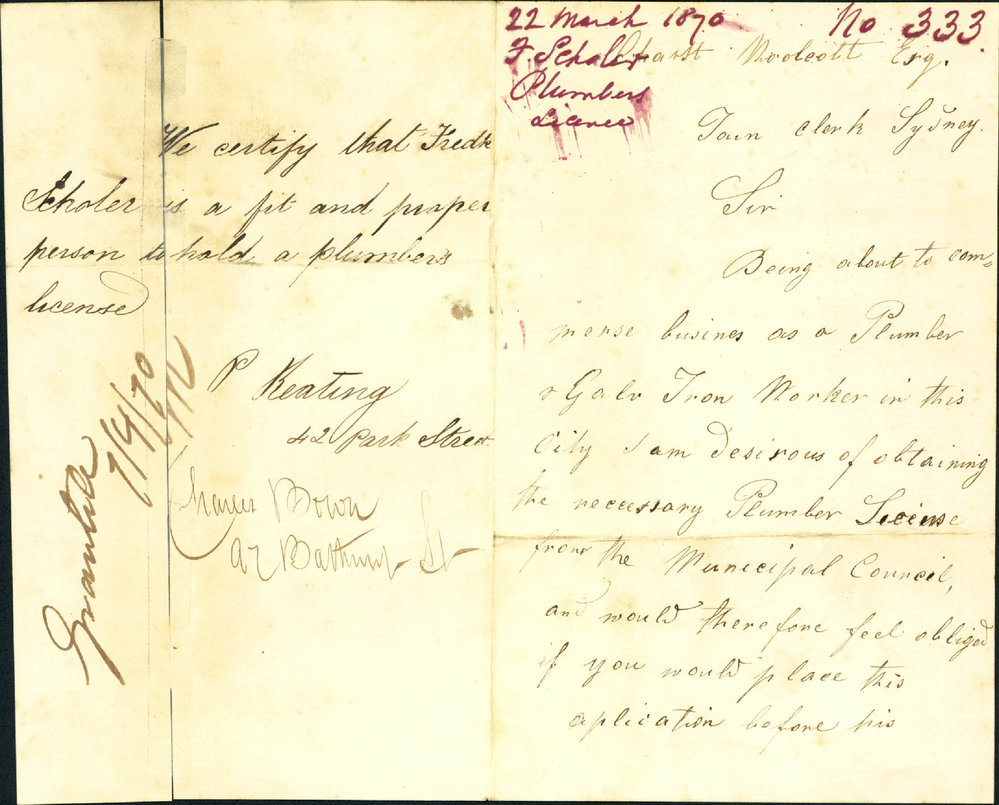 We certify that Fredk
Scholer is a fit and proper
person to hold a plumbers
license
P Keating
42 Park Street
Charles Bown
Bathurst St
Granted
7/4/70
22 March 1870
No 333.
F. Scholer
Plumbers
Licence
Woolcott Esq.
Town clerk Sydney.
Sir
Being about to com=
mense busines as a Plumber
& Galv Iron Worker in this
City I am desirous of obtaining
the necessary Plumber License
from the Municipal Council,
and would therefore feel obliged
if you would place this
aplication before his